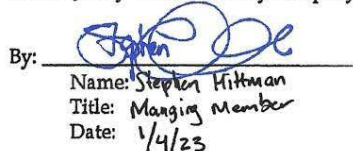 By: Stephen
Name: Stephen Hittman
Title: Managing Member
Date: 1/4/23